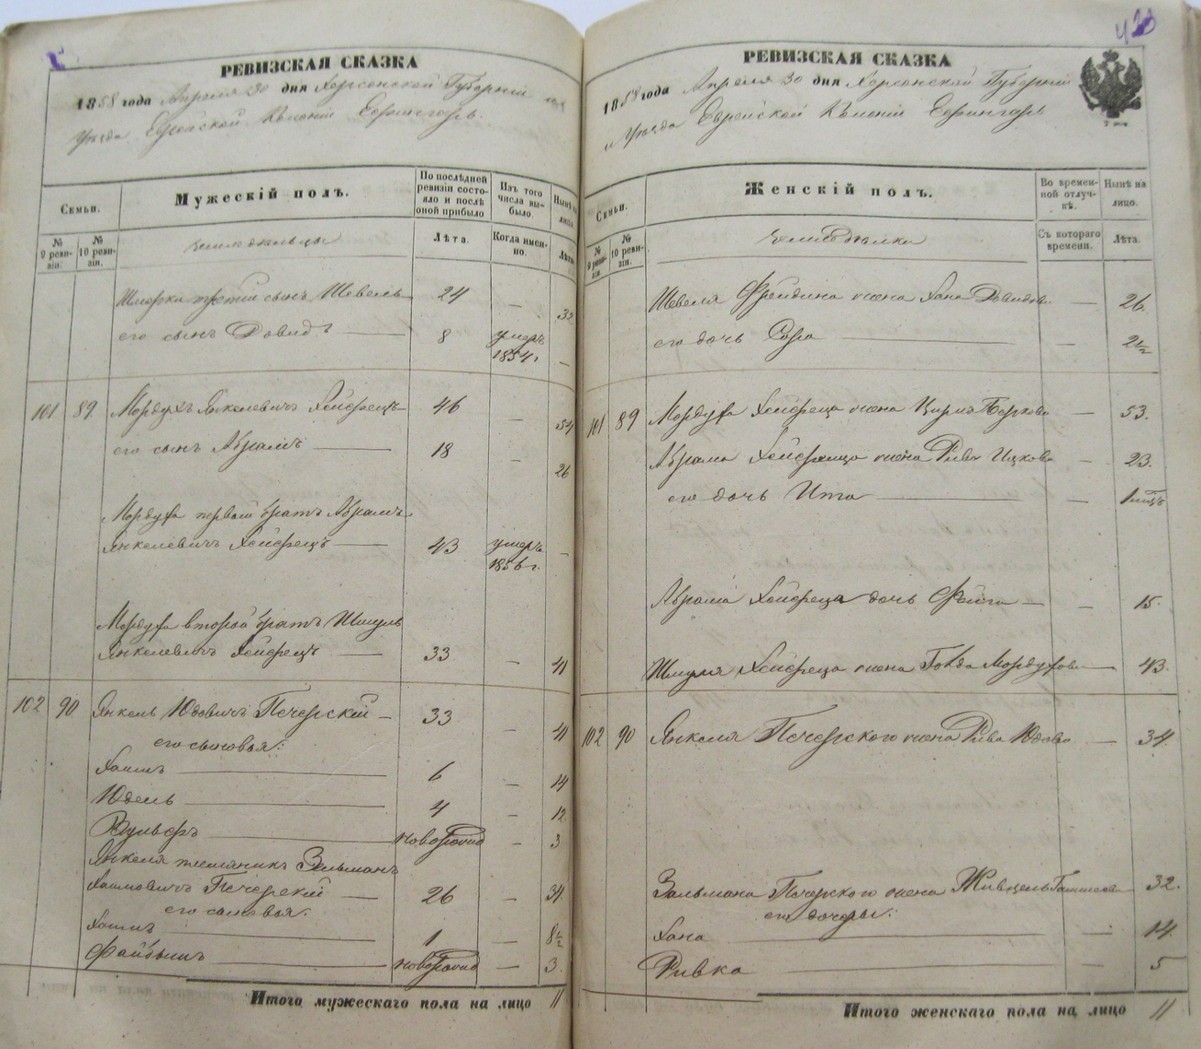 423
РЕВИЗСКАЯ СКАЗКА
1858 года Апреля 30 дня Херсонской Губернии
уезда Еврейской Колонии Ефингарь.
Семьи.
Мужескій полъ.
По послѣдней ревизіи состояло и послѣ оной прибыло
Изъ того числа выбыло.
Нынѣ на лицо.
№ 9 ревизіи.
№ 10 ревизіи.
земледельцы
Лѣта.
Когда именно.
Лѣта.
Шмерки третий сынъ Шевель 24 — 32
его сынъ Довидъ 8 умеръ 1854 г. —
101 89 Мордухъ Янкелевичъ Хейфецъ 46 — 54
его сынъ Абрамъ 18 — 26
Мордуха первый братъ Абрамъ
Янкелевичъ Хейфецъ 43 умеръ 1856 г. —
Мордуха второй братъ Шмуль
Янкелевичъ Хейфецъ 33 — 41
102 90 Янкель Юдовичъ Печерский — 33 — 41
его сыновья:
Хаимъ 6 — 14
Юдель 4 — 12
Вульфъ новорожд — 3
Янкеля племяникъ Зельманъ
Хаимовичъ Печерский — 26 — 34
его сыновья:
Хаимъ 1 — 8 1/2
Файбышъ новорожд — 3.
Итого мужескаго пола на лицо 11
РЕВИЗСКАЯ СКАЗКА
1858 года Апреля 30 дня Херсонской Губернии
и уезда Еврейской Колонии Ефингарь
Семьи.
Женскій полъ.
Во временной отлучкѣ.
Нынѣ на лицо.
№ 9 ревизіи.
№ 10 ревизіи.
земледелки
Съ котораго времени.
Лѣта.
Шевеля жена Хана Довидова — 26.
его дочь Сора — 2 1/2
101 89 Мордуха Хейфеца жена Цирля Беркова — 53.
Абрама Хейфица жена Рива Ицкова — 23.
его дочь Ита — 1 мѣсць
Абрама Хейфеца дочь Фейга — — 15.
Шмуля Хейфеца жена Голда Мордухова — 43.
102 90 Янкеля Печерского жена Рива Юдова — 34.
Зельмана Печерского жена — 32.
его дочеры:
Хана — 14.
Ривка — 5
Итого женскаго пола на лицо 11